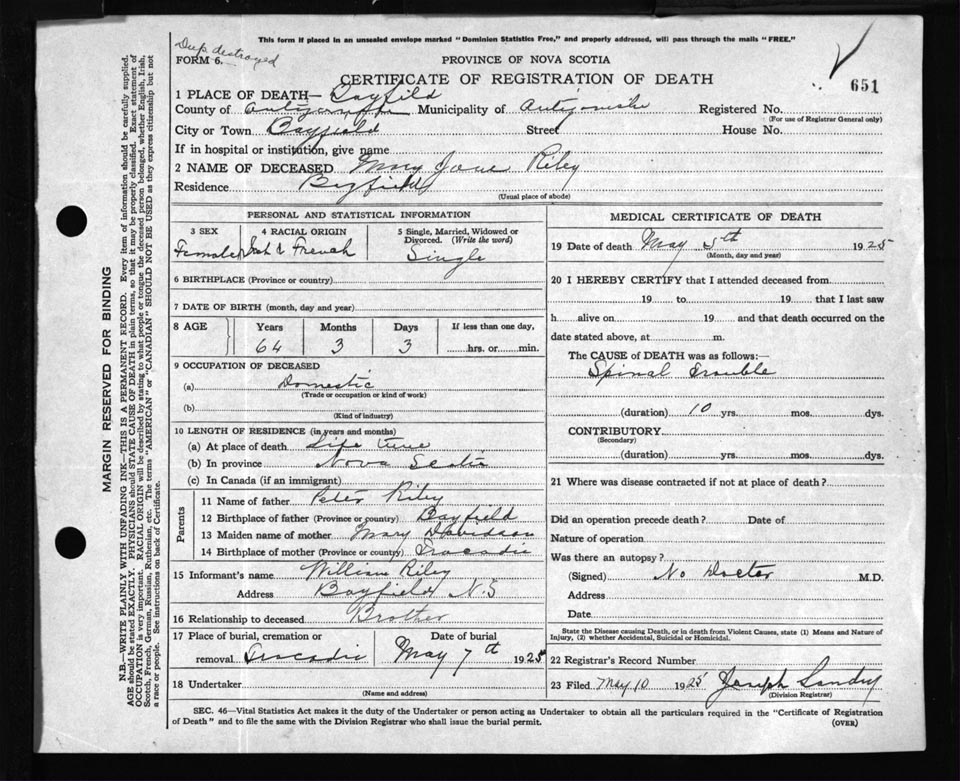 Dup. destroyed
This form if placed in an unsealed envelope marked "Dominion Statistics Free," and properly addressed, will pass through the mails "FREE."
FORM 6.
PROVINCE OF NOVA SCOTIA
CERTIFICATE OF REGISTRATION OF DEATH
651
1 PLACE OF DEATH— Bayfield
County of Municipality of Antigonish Registered No.
(For use of Registrar General only)
City or Town Bayfield Street House No.
If in hospital or institution, give name
2 NAME OF DECEASED Mary Jane Riley
Residence Bayfield
(Usual place of abode)
PERSONAL AND STATISTICAL INFORMATION
3 SEX 4 RACIAL ORIGIN 5 Single, Married, Widowed or Divorced. (Write the word)
Female & French Single
6 BIRTHPLACE (Province or country)
7 DATE OF BIRTH (month, day and year)
8 AGE Years Months Days If less than one day,
64 3 3 hrs. or min.
9 OCCUPATION OF DECEASED
(a) Domestic
(Trade or occupation or kind of work)
(b)
(Kind of industry)
10 LENGTH OF RESIDENCE (in years and months)
(a) At place of death Life time
(b) In province Nova Scotia
(c) In Canada (if an immigrant)
Parents
11 Name of father Peter Riley
12 Birthplace of father (Province or country) Bayfield
13 Maiden name of mother Mary Davidson
14 Birthplace of mother (Province or country) Tracadie
15 Informant's name William Riley
Address Bayfield N.S
16 Relationship to deceased Brother
17 Place of burial, cremation or Date of burial
removal Tracadie May 7th 1925
18 Undertaker
(Name and address)
MEDICAL CERTIFICATE OF DEATH
19 Date of death May 5th 1925
(Month, day and year)
20 I HEREBY CERTIFY that I attended deceased from
19 to 19 that I last saw
h alive on 19 and that death occurred on the
date stated above, at m.
The CAUSE of DEATH was as follows:—
Spinal Trouble
(duration) 10 yrs. mos. dys.
CONTRIBUTORY
(Secondary)
(duration) yrs. mos. dys.
21 Where was disease contracted if not at place of death?
Did an operation precede death? Date of
Nature of operation
Was there an autopsy?
(Signed) No Doctor M.D.
Address
Date
State the Disease causing Death, or in death from Violent Causes, state (1) Means and Nature of
Injury, (2) whether Accidental, Suicidal or Homicidal.
22 Registrar's Record Number
23 Filed May 10 1925 Joseph Landry
(Division Registrar)
SEC. 46—Vital Statistics Act makes it the duty of the Undertaker or person acting as Undertaker to obtain all the particulars required in the "Certificate of Registration
of Death" and to file the same with the Division Registrar who shall issue the burial permit.
(OVER)
MARGIN RESERVED FOR BINDING
N.B.—WRITE PLAINLY WITH UNFADING INK—THIS IS A PERMANENT RECORD. Every item of information should be carefully supplied.
AGE should be stated EXACTLY. PHYSICIANS should STATE CAUSE OF DEATH in plain terms, so that it may be properly classified. Exact statement of
OCCUPATION is very important. RACIAL ORIGIN will be described by stating to what people or tongue the deceased person belonged, whether English, Irish,
Scotch, French, German, Russian, Ruthenian, etc. The terms "AMERICAN" or "CANADIAN" SHOULD NOT BE USED as they express citizenship but not
a race or people. See instructions on back of Certificate.